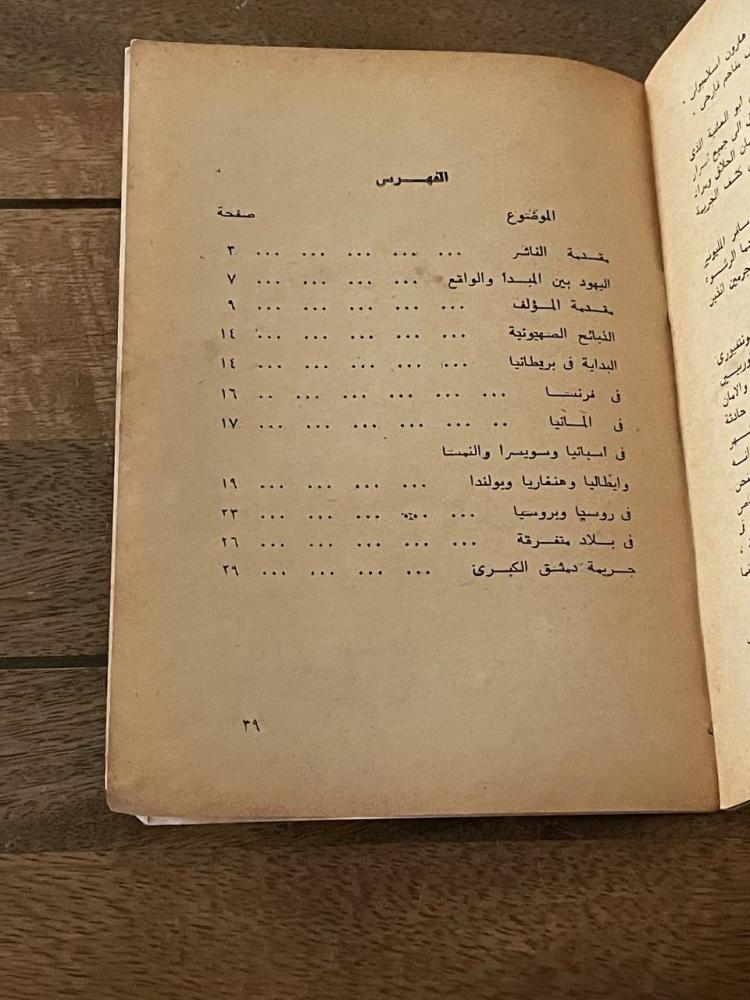 الفهرس
الموضوع صفحة
مقدمة الناشر ... ... ... ... ... ٣
اليهود بين المبدا والواقع ... ... ... ... ٧
مقدمة المؤلف ... ... ... ... ... ٩
الذبائح الصهيونية ... ... ... ... ... ١٤
البداية فى بريطانيا ... ... ... ... ... ١٤
فى فرنسا ... ... ... ... ... .. ١٦
فى المانيا .. ... ... ... ... ... ١٧
فى اسبانيا وسويسرا والنمسا
وايطاليا وهنغاريا وبولندا ... ... ... ... ١٩
فى روسيا وبروسيا ... ... ... ... ... ٢٣
فى بلاد متفرقة ... ... ... ... ... ٢٦
جريمة دمشق الكبرى ... ... ... ... ٢٩
٣٩
هارون اسلامبولى
ابو العافية الذى
كشف الجريمة